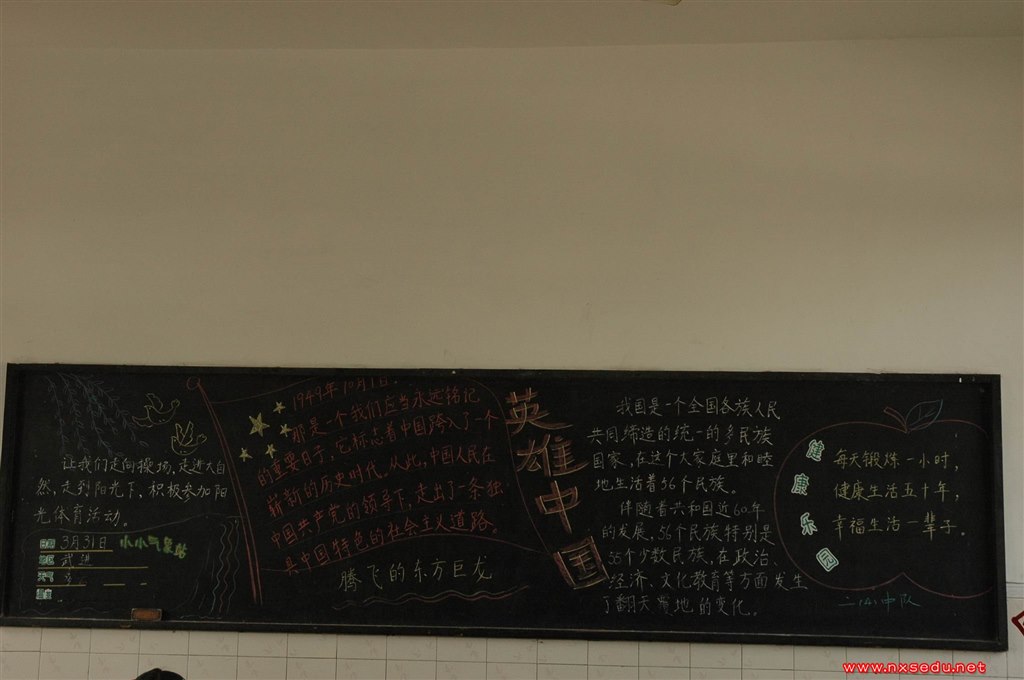 让我们走向操场,走进大自
然,走到阳光下,积极参加阳
光体育活动。
日期 3月31日
小小气象站
地区 武进
天气
温度
1949年10月1日..
那是一个我们应当永远铭记
的重要日子,它标志着中国跨入了一个
崭新的历史时代。从此,中国人民在
中国共产党的领导下,走出了一条独
具中国特色的社会主义道路。
腾飞的东方巨龙
英雄中国
我国是一个全国各族人民
共同缔造的统一的多民族
国家,在这个大家庭里和睦
地生活着56个民族。
伴随着共和国近60年
的发展,56个民族特别是
55个少数民族,在政治、
经济、文化教育等方面发生
了翻天覆地的变化。
健康乐园
每天锻炼一小时,
健康生活五十年,
幸福生活一辈子。
二(4)中队
www.nxsedu.net